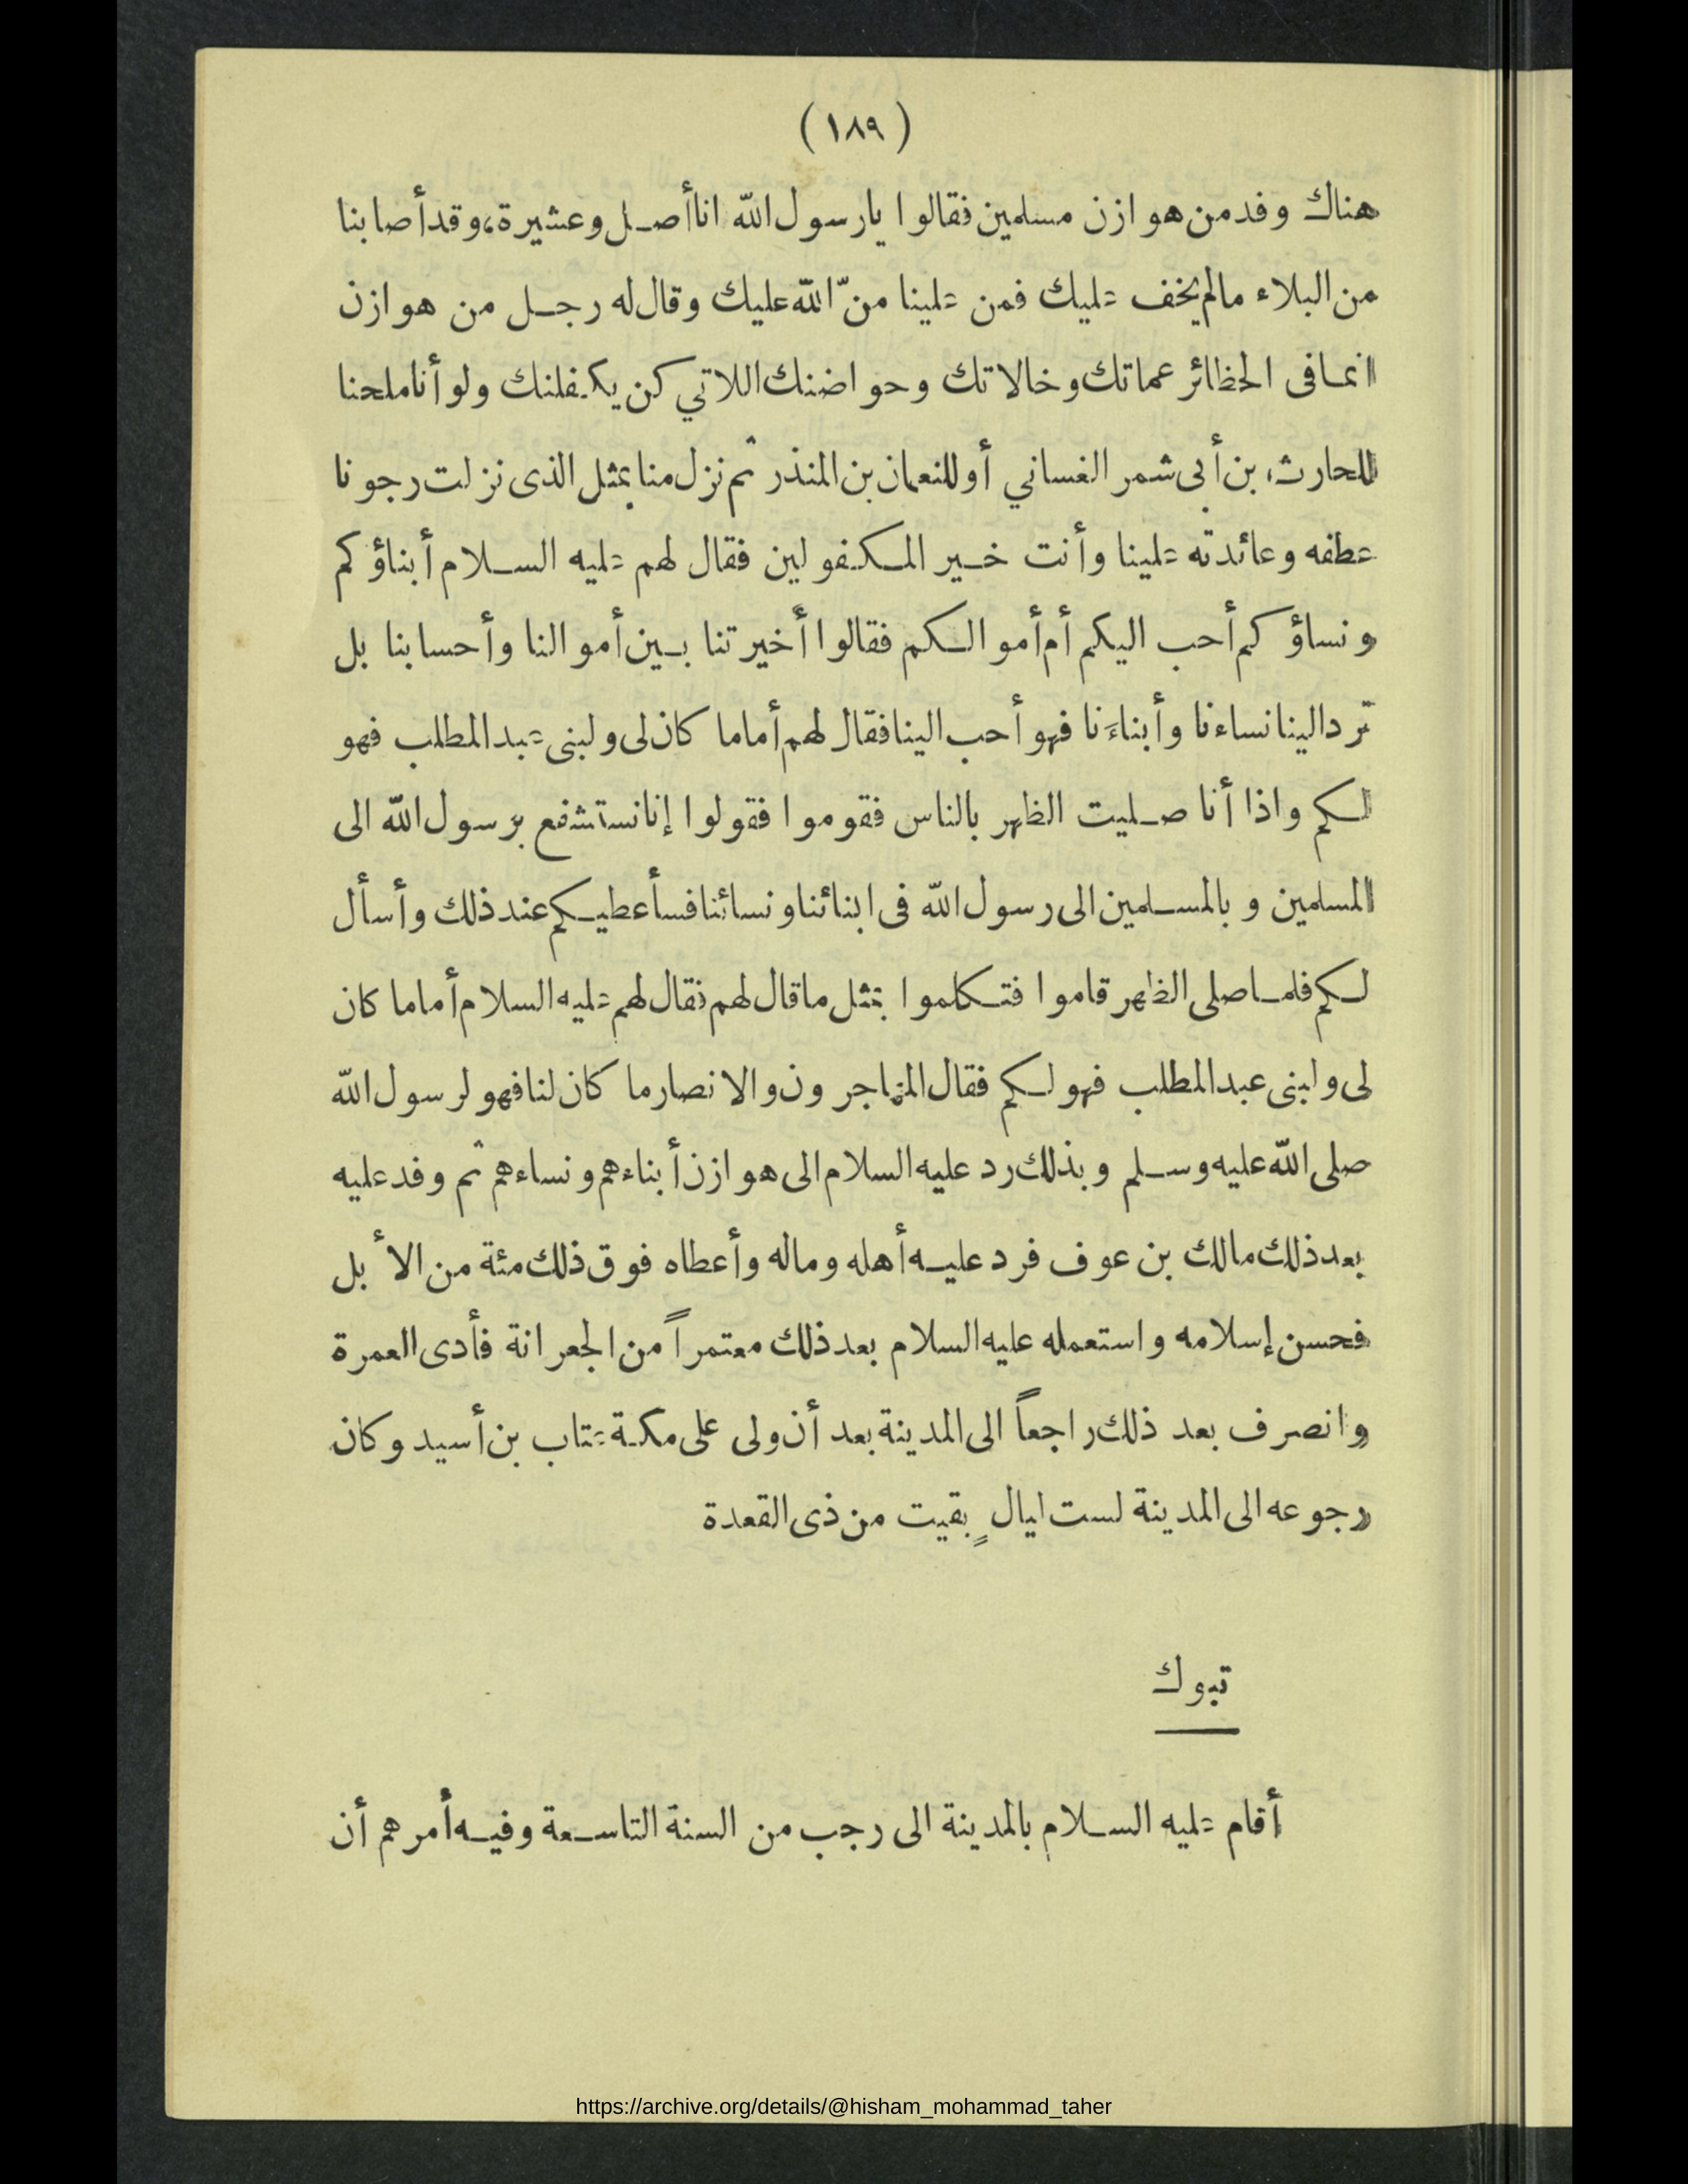 (١٨٩)
هناك وفد من هوازن مسلمين فقالوا يا رسول الله انا أصل وعشيرة، وقد أصابنا
من البلاء ما لم يخف عليك فمن علينا منّ الله عليك وقال له رجل من هوازن
انما فى الحظائر عماتك وخالاتك وحواضنك اللاتي كن يكفلنك ولو أنا ملحنا
للحارث بن أبى شمر الغساني أو للنعمان بن المنذر ثم نزل منا بمثل الذى نزلت رجونا
عطفه وعائدته علينا وأنت خير المكفولين فقال لهم عليه السلام أبناؤكم
ونساؤكم أحب اليكم أم أموالكم فقالوا أخيرتنا بين أموالنا وأحسابنا بل
ترد الينا نساءنا وأبناءَنا فهو أحب الينا فقال لهم أما ما كان لى ولبنى عبد المطلب فهو
لكم واذا أنا صليت الظهر بالناس فقوموا فقولوا إنا نستشفع برسول الله الى
المسلمين وبالمسلمين الى رسول الله فى ابنائنا ونسائنا فسأعطيكم عند ذلك وأسأل
لكم فلما صلى الظهر قاموا فتكلموا بمثل ما قال لهم فقال لهم عليه السلام أما ما كان
لى ولبنى عبد المطلب فهو لكم فقال المهاجرون والانصار ما كان لنا فهو لرسول الله
صلى الله عليه وسلم وبذلك رد عليه السلام الى هوازن أبناءهم ونساءهم ثم وفد عليه
بعد ذلك مالك بن عوف فرد عليه أهله وماله وأعطاه فوق ذلك مئة من الأبل
فحسن إسلامه واستعمله عليه السلام بعد ذلك معتمراً من الجعرانة فأدى العمرة
وانصرف بعد ذلك راجعاً الى المدينة بعد أن ولى على مكة عتاب بن أسيد وكان
رجوعه الى المدينة لست ليالٍ بقيت من ذى القعدة
تبوك
أقام عليه السلام بالمدينة الى رجب من السنة التاسعة وفيه أمرهم أن
https://archive.org/details/@hisham_mohammad_taher